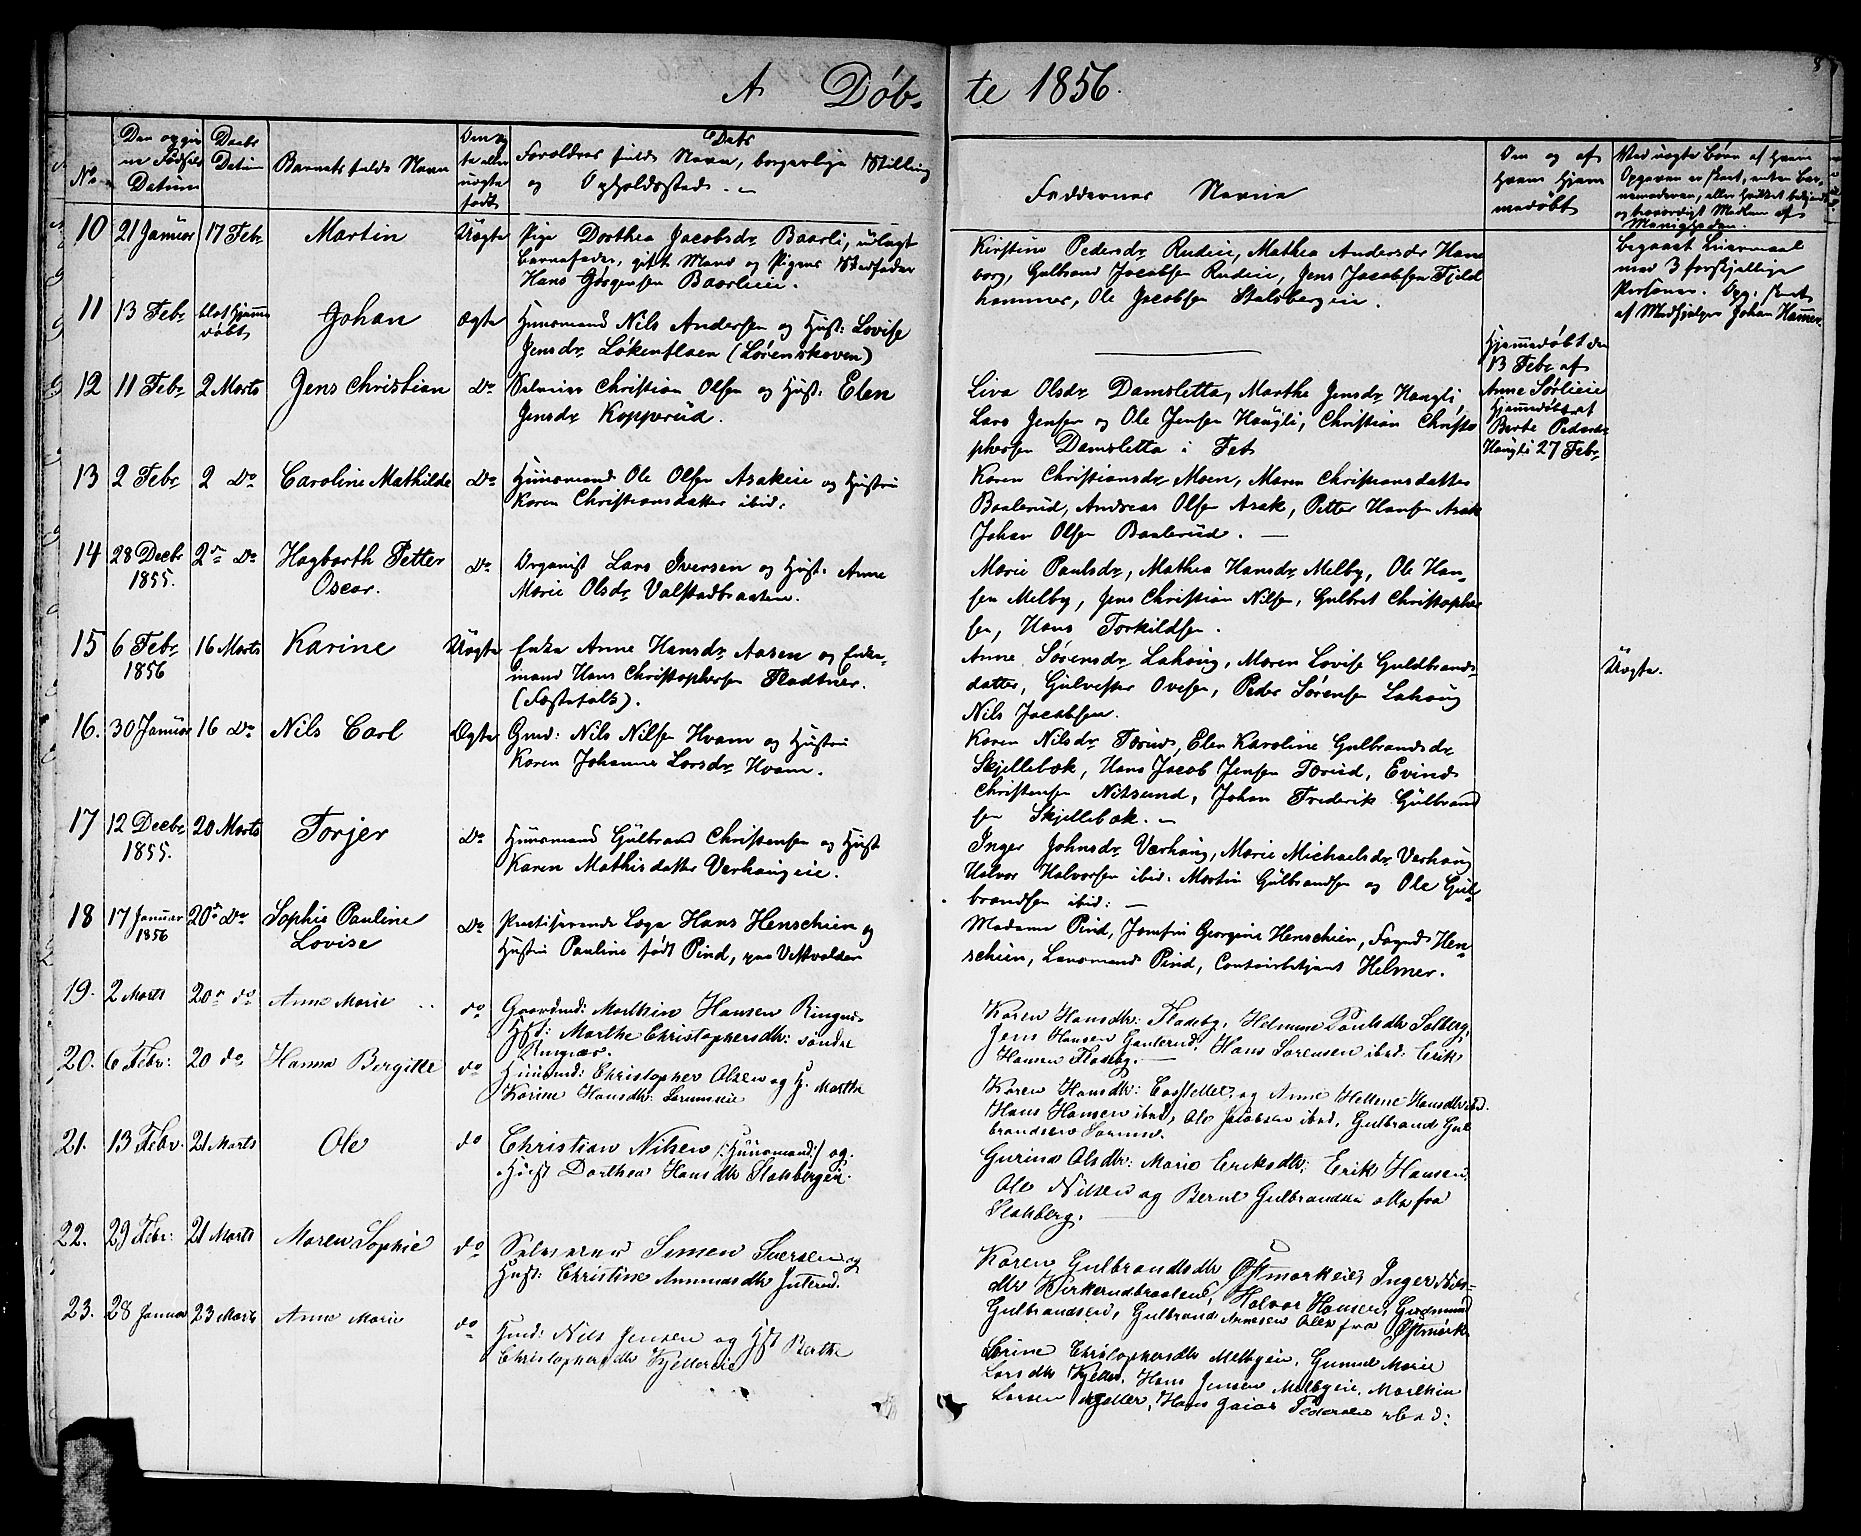 A Døb-
te 1856.
8
No
Den opgiv
ne Fødsels
Datum
Daabs
Datum
Barnets fulde Navn
Om æg
te eller
uægte
født
Dets
Forældres fulde Navn, borgerlige Stilling
og Opholdssted. -
Faddernes Navne
Om og af
hvem hjem
medøbt
Ved uægte Børn af hvem
Opgaven er skeet, enten Bar
nemoderen, eller hvilket bekjendt
og troværdigt Medlem af
Menigheden.
10 21 Januar 17 Febr. Martin Uægte
Pige Dorthea Jacobsdr Baarli, udlagt
Barnefader, gift Mand og Pigens Stedfader
Hans Jørgensen Baarlieie.
Kirstine Pedersdr Rudeie, Mathea Andersdr Hane
borg, Gulbrand Jacobsen Rudeie, Jens Jacobsen Fjeld
hammer, Ole Jacobsen Stalsbergeie.
begaaet Leiermaal
med 3 forskjellige
Personer. Opg. skeet
af Medhjelper Johan Hammer
11 13 Febr blot Hjemme
døbt Johan Ægte
Huusmand Nils Andersen og Hust: Lovise
Jensdr Løkenflaen (Lørenskoven)
Hjemmedøbt den
13 Febr af
Anne Sørlieie
12 11 Febr 2 Marts Jens Christian Do
Selveier Christian Olsen og Hust: Elen
Jensdr Kopperud.
Liva Olsdr Damsletta, Marthe Jensdr Haugli,
Lars Jensen og Ole Jensen Haugli, Christian Christo
phersen Damsletta i Fet
Hjemmedøbt af
Berte Pedersdr
Haugli 27 Febr
13 2 Febr 2 Do Caroline Mathilde Do
Huusmand Ole Olsen Asakeie og Hustru
Karen Christiansdatter ibid:
Karen Christiansdr Moen, Maren Christiansdatter
Baalerud, Andreas Olsen Asak, Petter Hansen Asak
Johan Olsen Baalerud. -
14 28 Decbr
1855. 2den Do Hagbarth Petter
Oscar. Do
Organist Lars Iversen og Hust. Anne
Marie Olsdr Valstadbraaten.
Marie Paulsdr, Mathea Hansdr Melby, Ole Han-
sen Melby, Jens Christian Nilsen, Gulbret Christophe
sen, Hans Torkildsen.
15 6 Febr
1856 16 Marts Karine Uægte
Enke Anne Hansdr Aasen og Enke-
mand Hans Christophersen Fladtner.
(Festefolk).
Anne Sørensdr Lahaug, Maren Lovise Guldbrands
datter, Gulvester Ovesen, Peder Sørensen Lahaug
Nils Jacobsen.
Uægte.
16. 30 Januar 16 Do Nils Carl Ægte
Gmd: Nils Nilsen Hvam og Hustru
Karen Johanne Larsdr Hvam.
Karen Nilsdr Tærud, Elen Karoline Gulbrandsdr
Skjellebæk, Hans Jacob Jensen Tærud, Evind
Christensen Nitsund, Johan Frederik Gulbrand
sen Skjellebæk. -
17 12 Decbr
1855. 20 Marts Torjer Do
Huusmand Gulbrand Christensen og Hust
Karen Mathisdatter Værhaugeie.
Inger Johnsdr Værhaug, Marie Michaelsdr Værhaug
Halvor Halvorsen ibid. Martin Gulbrandsen og Ole Gul-
brandsen ibid: -
18 17 Januar
1856 20de Do Sophie Pauline
Lovise Do
Practiserende Læge Hans Henschien og
Hustru Pauline født Pind, paa Vestvolden
Madame Pind, Jomfru Georgine Henschien, Foged Hen-
schien, Lensmand Pind, Contoirbetjent Helmer.
19. 2 Marts 20de do Anne Marie do
Gaardmd: Marthin Hansen Ringnæs
Hst: Marthe Christophersdtr: søndre
Ringnæs.
Karen Hansdtr: Fladeby, Helmine Paulsdtr Solberg,
Jens Hansen Gauterud, Hans Sørensen ibid: Erik
Hansen Fladeby.
20. 6 Febr: 20 do Hanna Bergitte do
Huusmd: Christopher Olsen og H. Marthe
Karine Hansdtr: Sørumseie
Karen Hansdtr: og Anne Hellene Hansdtr ibd.
Hans Hansen ibid, Ole Jacobsen ibid, Gulbrand Gul
brandsen Sørum.
21. 13 Febr. 21 Marts Ole do
Christian Nilsen /:Huusmand:/ og.
Hust Dorthea Hansdtr Stalsbergeie.
Gurina Olsdtr: Marie Eriksdtr: Erik Hansen.
Ole Nilsen og Bernt Gulbrandsen alle fra
Stalsberg.
22. 29 Febr: 21 Marts Maren Sophie do
Selveier Simen Iversen og
Hust: Christine Amundsdtr Juterud.
Karen Gulbrandsdtr Østmarkeie, Inger Niels-
dtr Kirkerudbraaten, Halvor Hansen, Gudmund
Gulbrandsen, Gulbrand Arnesen Alle fra Østmork
23. 28 Januar 23 Marts Anne Marie do
Hmd: Nils Jensen og Hst Berthe
Christophersdtr Kjellereie
Serine Christophersdtr Melbyeie. Gunnel Marie
Larsdtr Kjeller, Hans Jensen Melbyeie, Marthin
Larsen Kjeller, Hans Pedersen ibid: